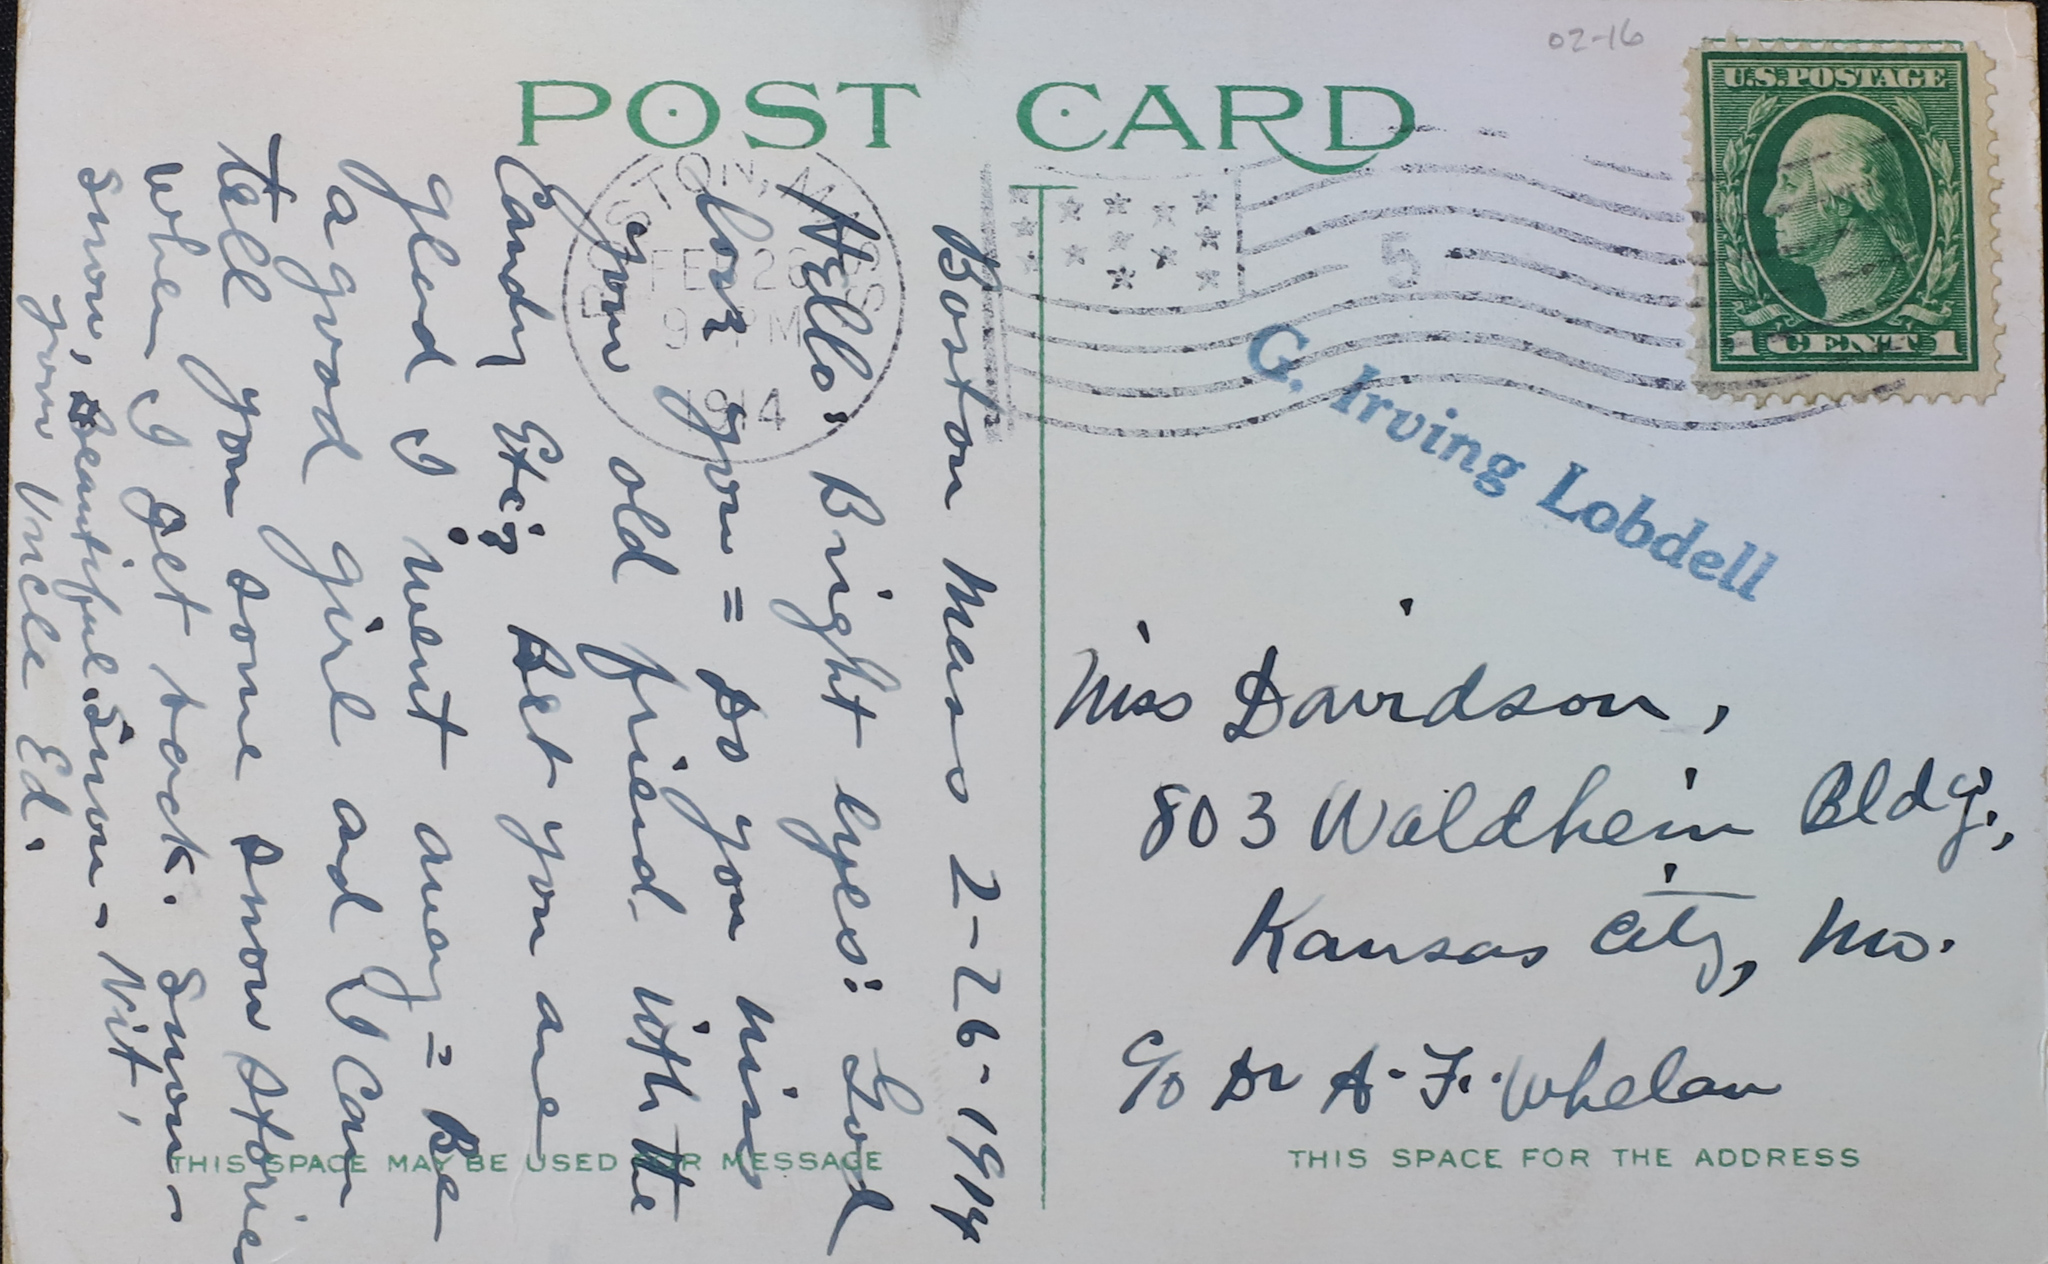 02-16
POST CARD
U.S. POSTAGE
1 CENT 1
BOSTON, MASS
FEB 26
9 PM
1914
5
G. Irving Lobdell
Boston Mass 2-26-1914
Hello: Bright Eyes: God
love you = Do you miss
your old friend with the
Candy Etc; Bet you are
glad I went away = Be
a good girl and I can
tell you some snow stories
when I get back. Snow -
Snow, Beautiful Snow - Nit,
your Uncle Ed.
Miss Davidson,
803 Waldheim Bldg.,
Kansas City, Mo.
c/o Dr A. F. Whelan
THIS SPACE MAY BE USED FOR MESSAGE
THIS SPACE FOR THE ADDRESS